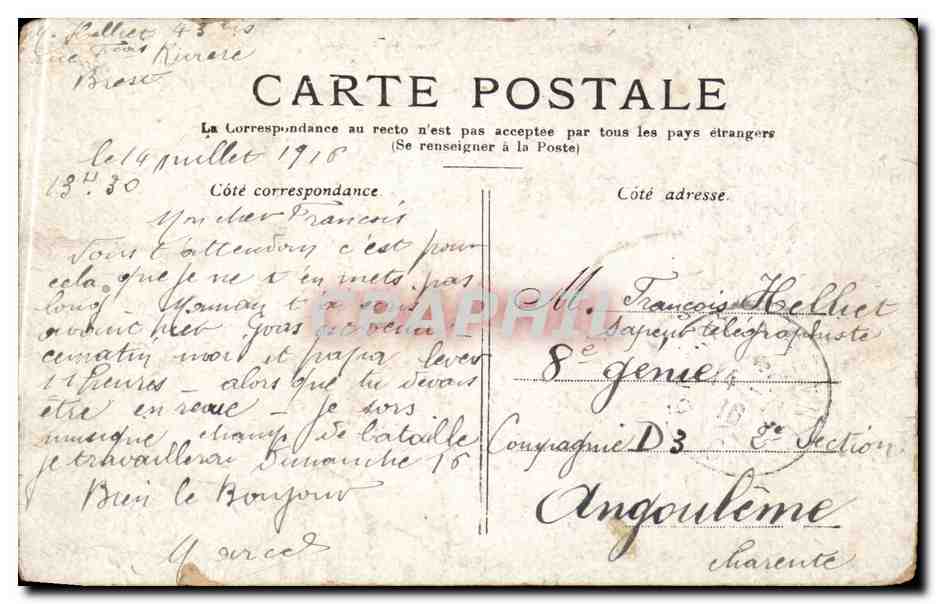 M. Helliet 43 bis
rue Rivière
Brest
CARTE POSTALE
La Correspondance au recto n'est pas acceptee par tous les pays étrangers
(Se renseigner à la Poste)
le 14 juillet 1916
13H.30
Côté correspondance.
Mon cher Francois
Vous t'attendons c'est pour
cela que je ne t'en mets pas
long Maman t'a
avant hier
ce matin moi et papa levés
11 heures - alors que tu devais
être en - je sors
musique champ de bataille
je travaillerai Dimanche 16
Bien le Bonjour
Marcel
Côté adresse.
M. François Helliet
sapeur télégraphiste
8e génie
Compagnie D3 2e Section
Angoulême
charente